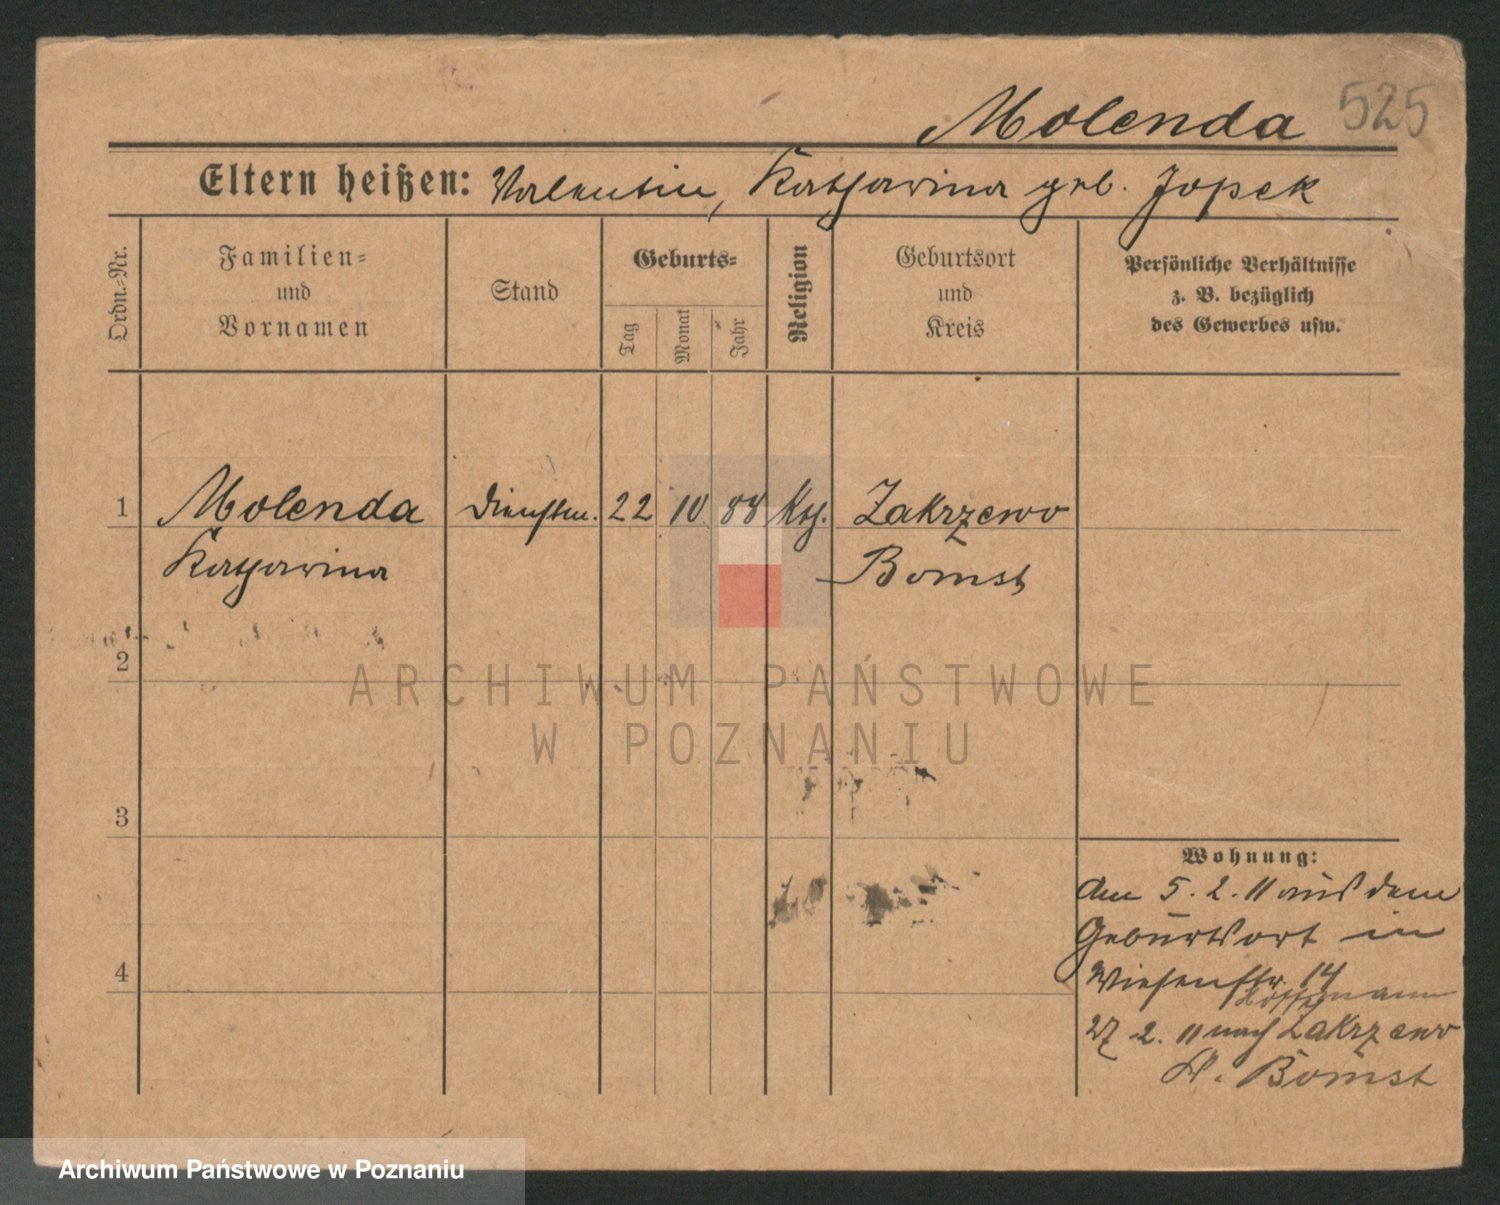 Molenda 525
Eltern heißen: Valentin, Katharina geb. Jopek
Ordn.=Nr.
Familien=
und
Vornamen
Stand
Geburts=
Tag
Monat
Jahr
Religion
Geburtsort
und
Kreis
Persönliche Verhältnisse
z. B. bezüglich
des Gewerbes usw.
1 Molenda Dienstm. 22 10 88 Kth. Zakrzewo
Katharina Bomst
2
3
4
Wohnung:
den 5. 2. 11 aus dem
Geburtsort in
Wiesenstr. 14
Hoffmann
27 2. 11 nach Zakrzewo
K. Bomst
ARCHIWUM PAŃSTWOWE
W POZNANIU
Archiwum Państwowe w Poznaniu